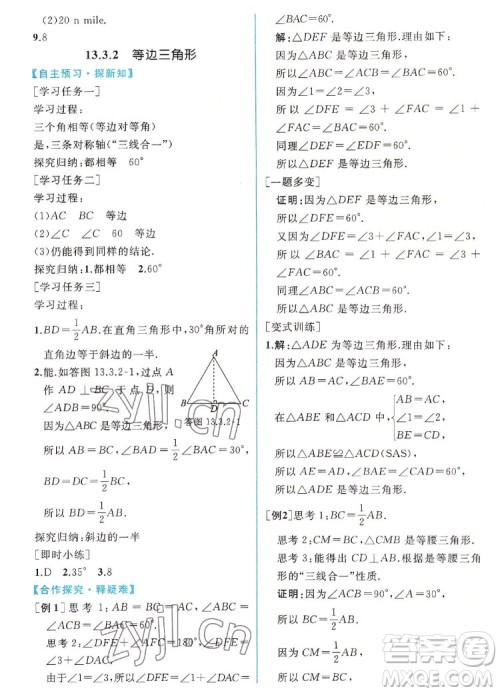 (2)20 n mile.
9.8
13.3.2 等边三角形
【自主预习·探新知】
[学习任务一]
学习过程:
三个角相等(等边对等角)
是,三条对称轴(“三线合一”)
探究归纳:都相等 60°
[学习任务二]
学习过程:
(1)AC BC 等边
(2)∠C ∠C 60° 等边
(3)仍能得到同样的结论.
探究归纳:1.都相等 2.60°
[学习任务三]
学习过程:
1.BD=1/2AB.在直角三角形中,30°角所对的
直角边等于斜边的一半.
2.能.如答图 13.3.2-1,过点 A
作 AD⊥BC 于点 D,则
∠ADB=90°.
因为∠BAC=60°,
所以∠BAD=1/2∠BAC=30°,
所以 BD=DC=1/2BC,
所以 BD=1/2AB.
探究归纳:斜边的一半
[即时小练]
1.D 2.35° 3.8
【合作探究·释疑难】
[例1]思考1:AB=BC=AC,∠ABC=
∠ACB=∠BAC=60°.
思考2:∠DFE+∠DAC=∠DFE+
∠3+∠DAC=180°,
由于∠1=∠3,所以∠DFE=∠DAC+
∠BAC=60°.
解:△DEF 是等边三角形.理由如下:
因为△ABC 是等边三角形,
所以∠ABC=∠ACB=∠BAC=60°.
因为∠1=∠2=∠3,
所以∠DFE=∠3+∠FAC=∠1+
∠FAC=∠BAC=60°.
同理∠DEF=60°,
所以△DEF 是等边三角形.
[一题多变]
证明:因为△DEF 是等边三角形,
所以∠DFE=60°.
又因为∠DFE=∠3+∠FAC=∠1+
∠FAC=∠BAC,
所以∠BAC=60°.
同理∠ACB=60°.
所以△ABC 是等边三角形.
[变式训练]
1.解:△ADE 为等边三角形.理由如下:
因为△ABC 为等边三角形,
所以∠BAC=60°,AB=AC.
在△ABE 和△ACD 中,{AB=AC,
∠1=∠2,
BE=CD,
所以△ABE≌△ACD(SAS).
所以 AE=AD,∠CAD=∠BAE=60°.
所以△ADE 是等边三角形.
[例2]思考1:BC=1/2AB.
思考2:CM=MB=1/2AB.
思考3:CD⊥BM.依据是等腰三角形的
“三线合一”性质.
证明:因为∠ACB=90°,∠A=30°,
所以 BC=1/2AB.
因为 CM=MB=1/2AB,
所以 BC=CM=MB.